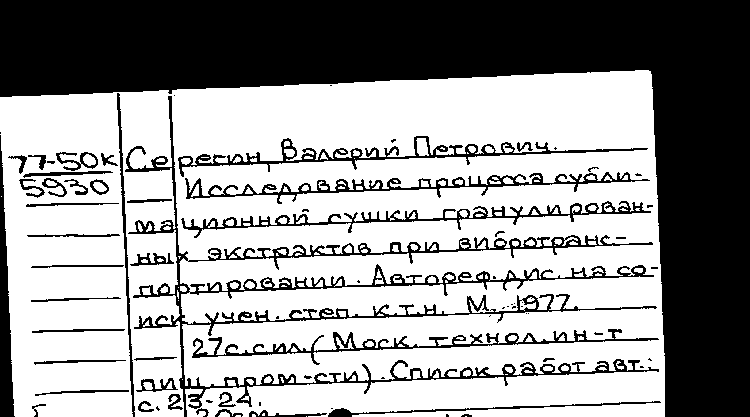 77-50к Серегин, Валерий Петрович.
5930 Исследование процесса субли-
мационной сушки гранулирован-
ных экстрактов при вибротранс-
портировании. Автореф. дис. на со-
иск. учен. степ. к.т.н. М., 1977.
27с. с ил. (Моск. технол. ин-т
пищ. пром-сти). Список работ авт.:
с. 23-24.